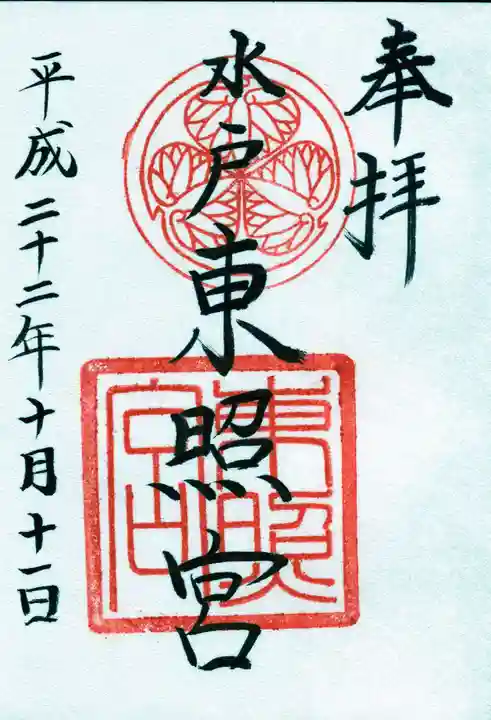 奉拝
水戸東照宮
東照宮印
平成二十二年十月十一日